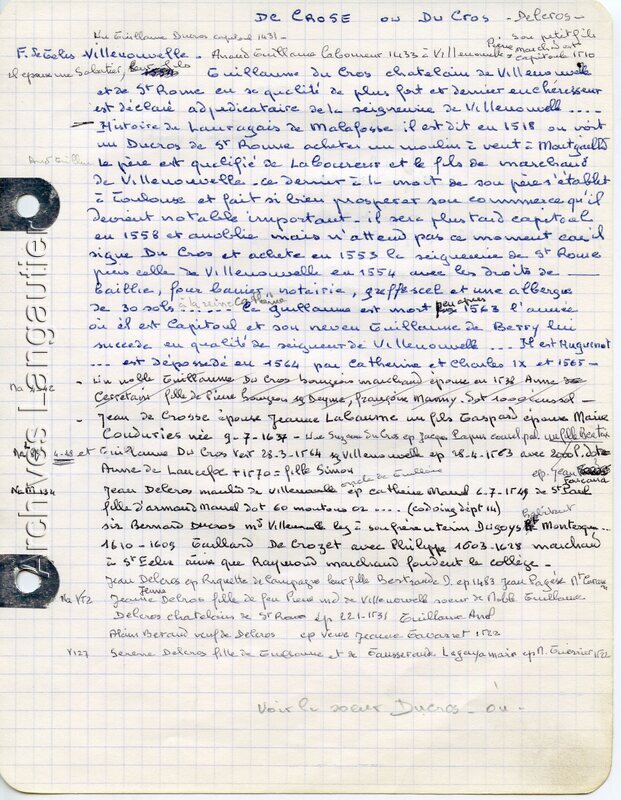 DE CROSE ou DU CROS - Delcros -
Un Guillaume Ducros capitoul 1431 -
son petit fils
F. de Gelis Villenouvelle - Arnaud Guillaume laboureur 1433 à Villenouvelle
Pierre marchand est capitoul 1510
il épouse une Salatier,
Guillaume du Cros chatelain de Villenouvelle
et de St Rome en sa qualité de plus fort et dernier enchérisseur
est déclaré adjudicataire de la seigneurie de Villenouvelle ....
Histoire du Lauragais de Malafosse il est dit en 1518 on voit
un Ducros de St Rome acheter un moulin à vent à Montgaillard
le père est qualifié de Laboureur et le fils de marchand
de Villenouvelle - ce dernier à la mort de son père s'établit
à Toulouse et fait si bien prosperer son commerce qu'il
devient notable important - il sera plus tard capitoul
en 1558 et anobli mais n'attend pas ce moment car il
signe Du Cros et achete en 1553 la seigneurie de St Rome
puis celle de Villenouvelle en 1554 avec les droits de
baillie, four banier, notairie, greffe scel et une albergue
de 30 sols ..... Ce guillaume est mort peu apres 1563 l'année
à la reine Catherine
où il est Capitoul et son neveu Guillaume de Berry lui
succede en qualité de seigneur de Villenouvelle .... Il est Huguenot
... est dépossédé en 1564 par Catherine et Charles IX et 1565 -
Un noble Guillaume Du Cros Bourgeois marchand épouse en 1532 Anne de
Cerretain fille de Pierre Bourgeois sg Deyme, françoise Manny - Dot 1000
Jean de Crosse épouse Jeanne Labaume un fils Gaspard épouse Marie
Couduriès née 9-7-1637 - Une Suzanne du Cros ep Jacques
4-48 et Guillaume Du Cros Vert 28-3-1564 sg Villenouvelle ep 28-4-1563 avec 2000
Anne de Lancefoc +1570 = fille Simon
ep. Jean
oncle de Guillaume
Jean Delcros maulin de Villenouvelle ep catherine Maurel 6-7-1549 de St
fille d'armaud Maurel dot 60 moutons 02 .... (cordoing dépt 14)
sire Bernard Ducros md Villenouvelle
1610 - 1609 Guillard De Crozet avec Philippe 1603-1628 marchand
à St Felix ainsi que Raymond marchand fondent le collège -
Jean Delcros ep Riquette de Campagne leur fille Bertrande D. ep 1483 Jean Pagèse
Na V52 Jeanne Delcros fille de feu Pierre md de Villenouvelle soeur de Noble Guillaume
Delcros chatelain de St Rome ep 22-1-1531 Guillaume And
Alain Berand veuf de Delcros ep veuve Jeanne 1522
V127 Serene Delcros fille de Guillaume et de Gausserande ep N. 1522
Voir la soeur Ducros - où -
Archives Langautier